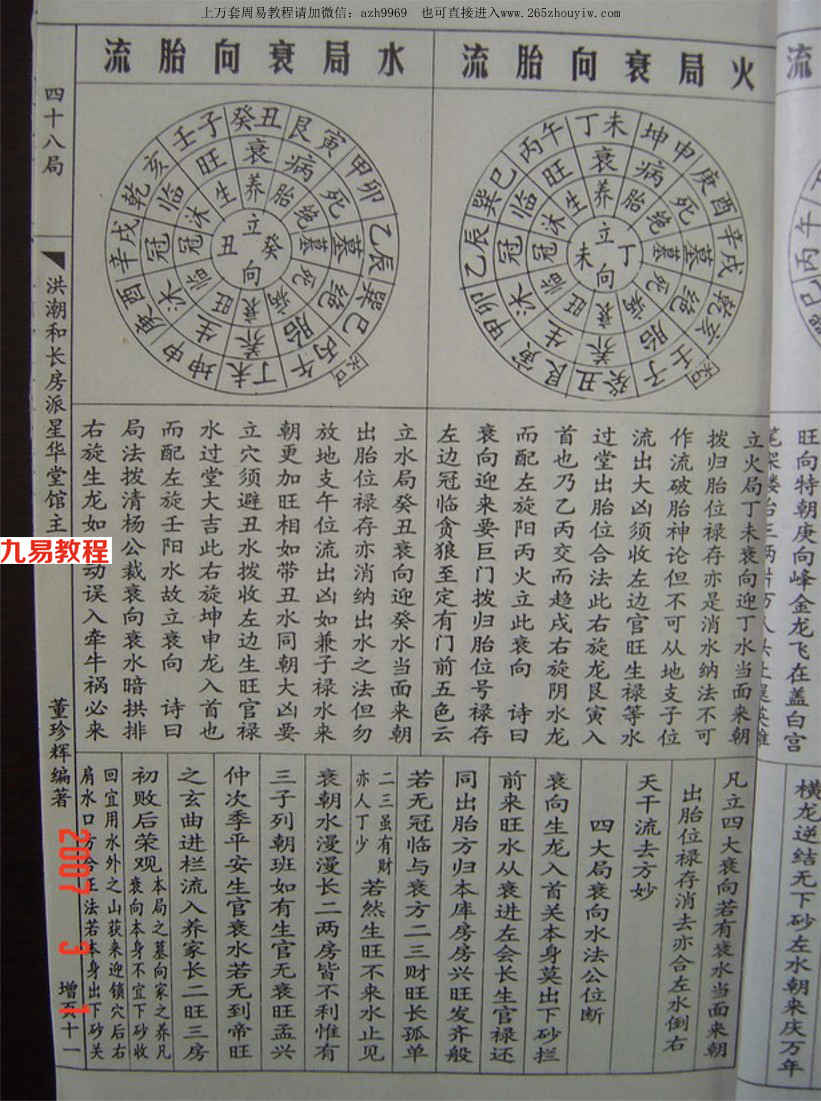 上万套周易教程请加微信：azh9969 也可直接进入www.265zhouyiw.com
流
旺向特朝庚向峰金龙飞在盖白宫
横龙逆结无下砂左水朝来庆万年
火局衰向胎流
丁未坤申庚酉辛戌乾亥壬子癸丑艮寅甲卯乙辰巽巳丙午
衰病死墓绝胎养生沐冠临旺
养胎绝墓死病衰旺临冠沐生
立丁向未
水口
立火局丁未衰向迎丁水当面来朝
拨归胎位禄存亦是消水纳法不可
作流破胎神论但不可从地支子位
流出大凶须收左边官旺生禄等水
过堂出胎位合法此右旋龙艮寅入
首也乃乙丙交而趋戌右旋阴水龙
而配左旋阳丙火立此衰向 诗曰
衰向迎来要巨门拨归胎位号禄存
左边冠临贪狼至定有门前五色云
水局衰向胎流
癸丑艮寅甲卯乙辰巽巳丙午丁未坤申庚酉辛戌乾亥壬子
衰病死墓绝胎养生沐冠临旺
养胎绝墓死病衰旺临冠沐生
立癸向丑
水口
立水局癸丑衰向迎癸水当面来朝
出胎位禄存亦消纳出水之法但勿
放地支午位流出凶如兼子禄水来
朝更加旺相如带丑水同朝大凶要
立穴须避丑水拨收左边生旺官禄
水过堂大吉此右旋坤申龙入首也
而配左旋壬阳水故立衰向 诗曰
局法拨清杨公裁衰向衰水暗拱排
右旋生龙如
动误入牵牛祸必来
凡立四大衰向若有衰水当面来朝
出胎位禄存消去亦合左水倒右
天干流去方妙
四大局衰向水法公位断
衰向生龙入首关本身莫出下砂拦
前来旺水从衰进左会长生官禄还
同出胎方归本库房房兴旺发齐般
若无冠临与衰方二三财旺长孤单
二三虽有财亦人丁少
若然生旺不来水止见
衰朝水漫漫长二两房皆不利惟有
三子列朝班如有生官无衰旺孟兴
仲次季平安生官衰水若无到帝旺
之玄曲进栏流入养家长二旺三房
初败后荣观
本局之墓向家之养凡
衰向本身不宜下砂收
回宜用水外之山获来迎锁穴后右
肩水口方合正法若本身出下砂关
四十八局
洪潮和长房派星华堂馆主
董珍辉编著
增页十一
九易教程
2007 3 1